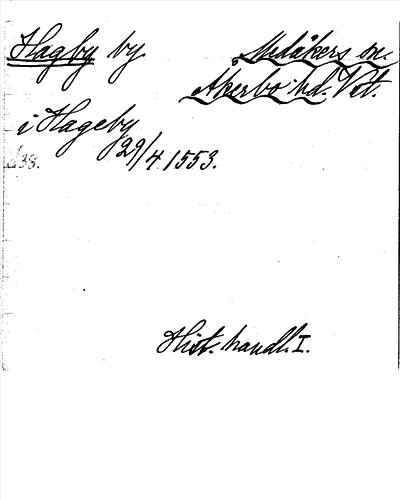 Hagby by. Medåkers sn.
Åkerbo hd. Vst.
i Hageby
29/4 1553.
38.
Hist. handl. I.